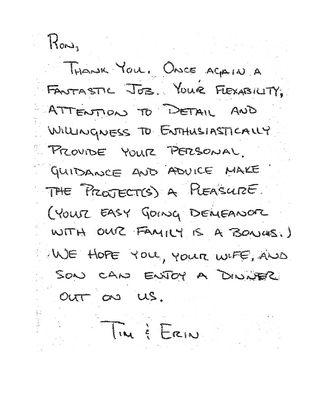 Ron,
Thank You. Once again a
Fantastic Job. Your Flexability,
Attention to Detail and
willingness to Enthusiastically
Provide your Personal.
guidance and advice make
the Project(s) a Pleasure.
(your easy going demeanor
with our family is a bonus.)
We hope you, your wife, and
son can enjoy a dinner
out on us.
Tim & Erin